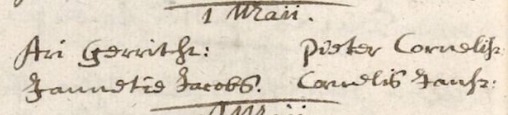 1 Maii.
Ari Gerritsz: Pieter Cornelisz
Jannetie Jacobs. Cornelis Jansz:
Maii